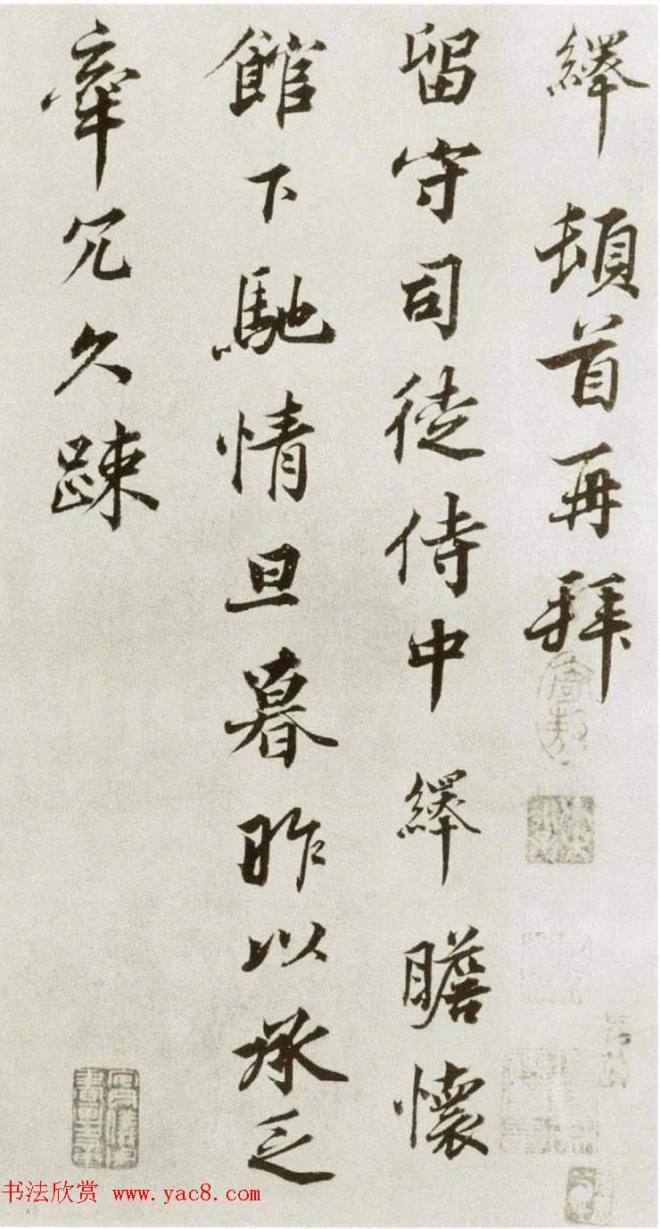 繹 頓首再拜
留守司徒侍中 繹 瞻懷
館下馳情旦暮昨以承乏
牽冗久疎
书法欣赏 www.yac8.com